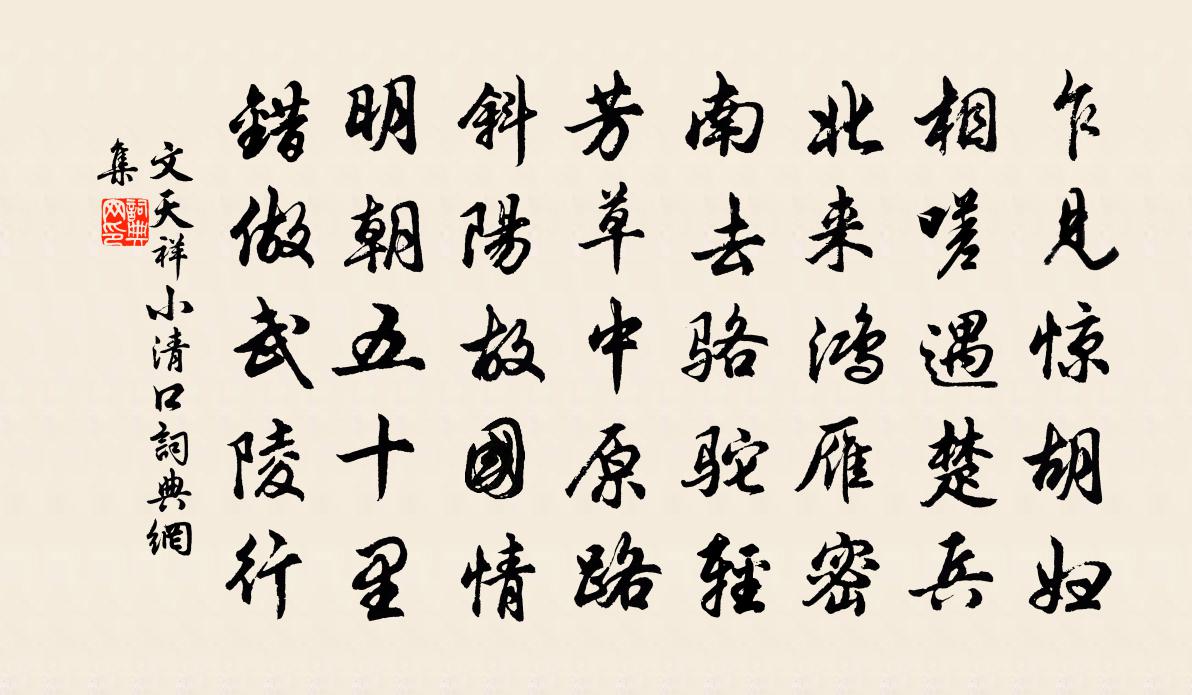 乍見惊胡妇
相嗟遇楚兵
北来鸿雁密
南去骆驼輕
芳草中原路
斜陽故國情
明朝五十里
錯做武陵行
文天祥小清口詞典網
集
詞典
网印